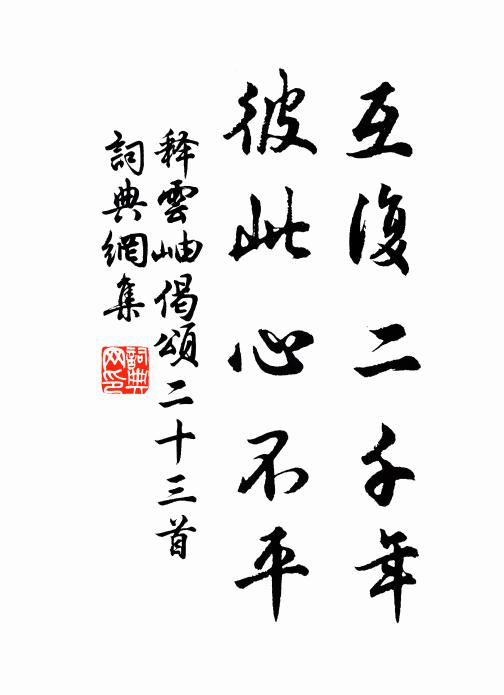 互復二千年
彼此心不平
釋雲岫偈頌二十三首
詞典網集
詞典網印